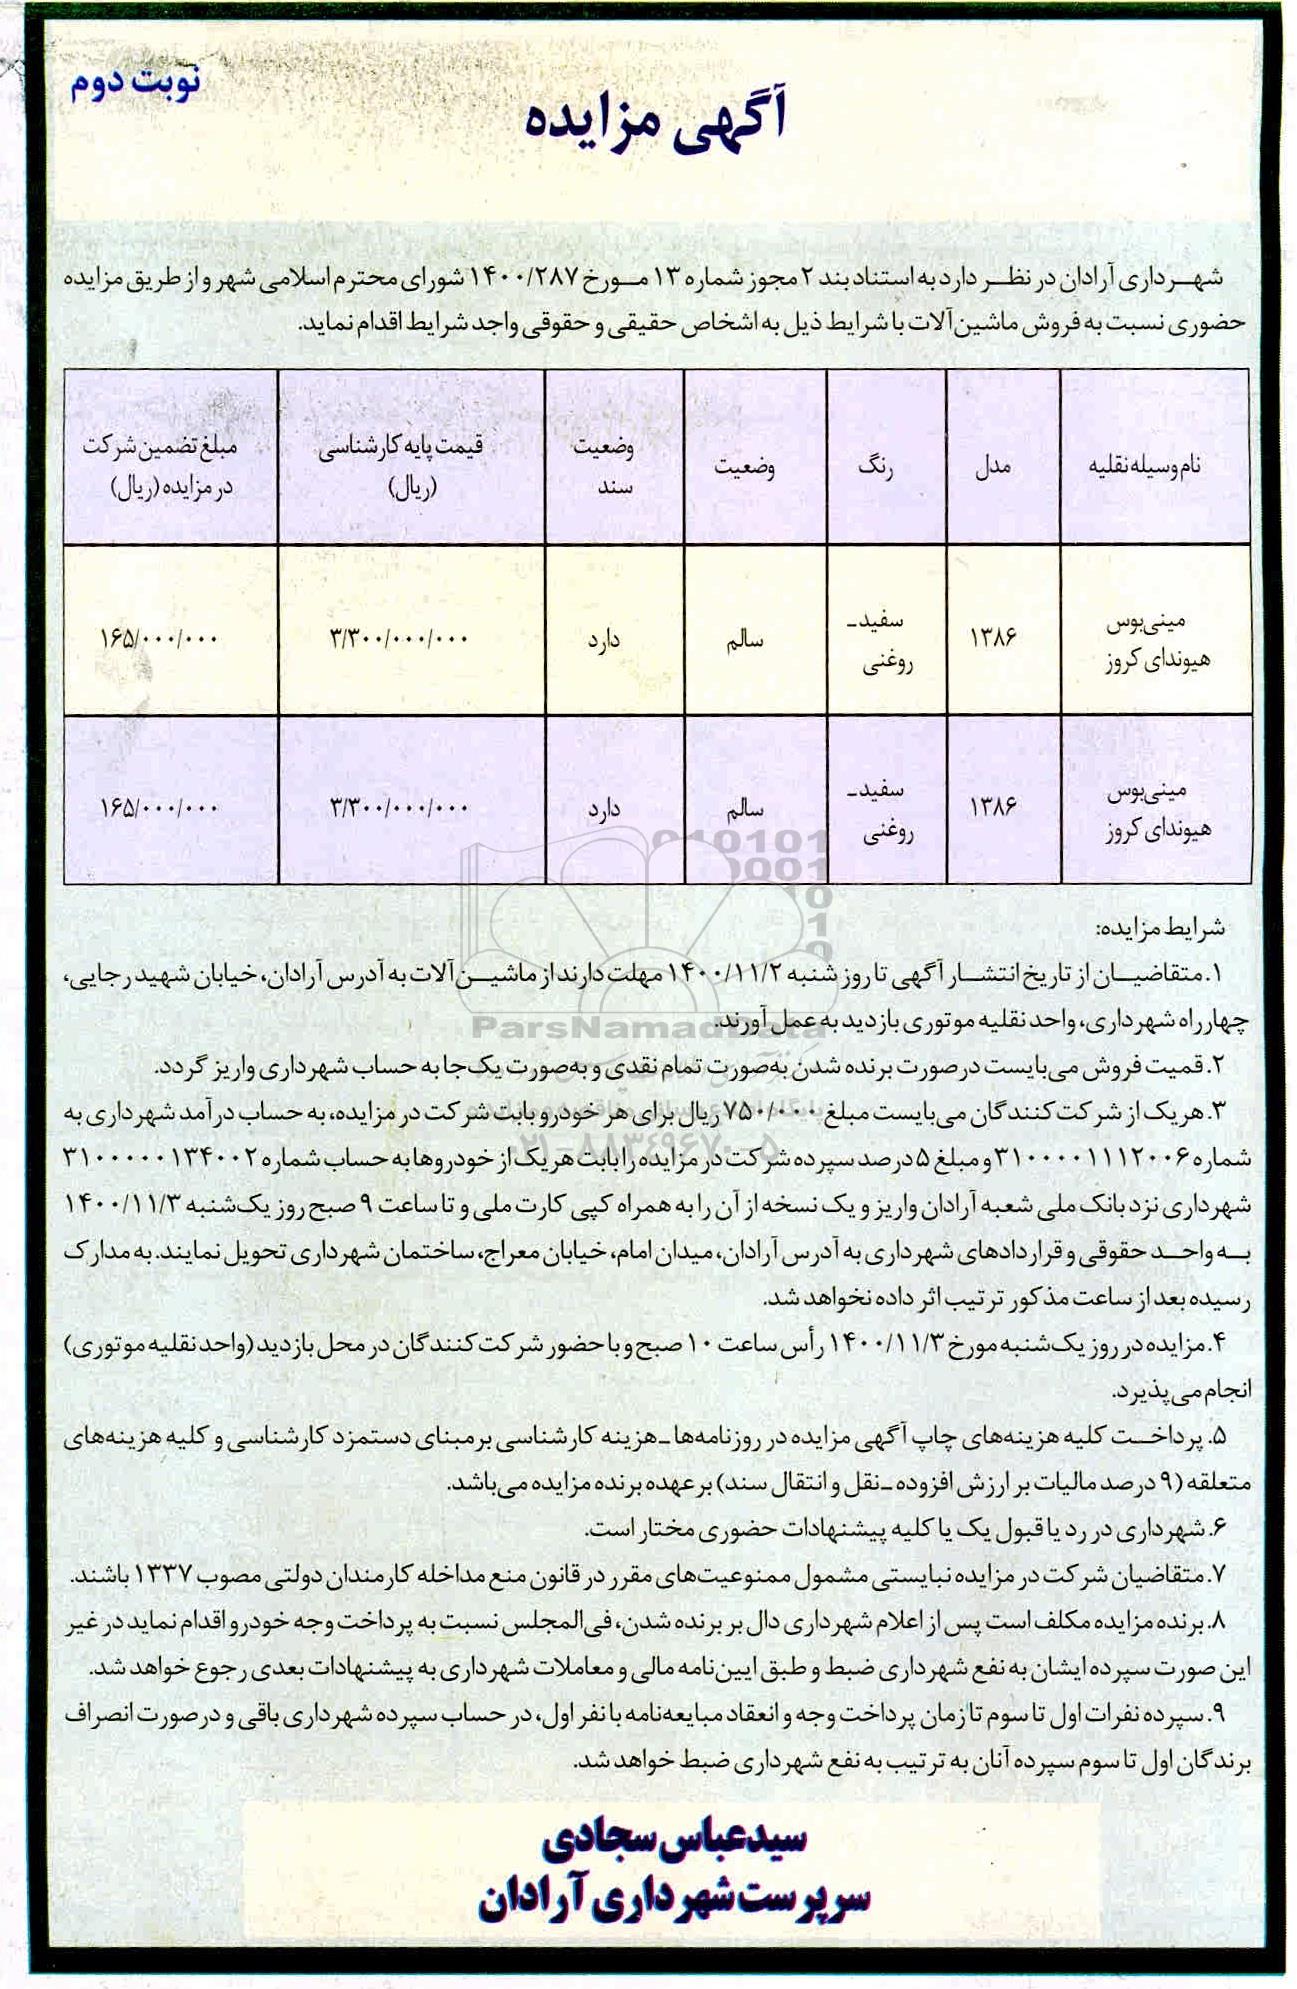 نوبت دوم
آگهی مزایده
شهرداری آرادان در نظر دارد به استناد بند ۲ مجوز شماره ۱۳ مورخ ۱۴۰۰/۲۸۷ شورای محترم اسلامی شهر و از طریق مزایده
حضوری نسبت به فروش ماشین‌آلات با شرایط ذیل به اشخاص حقیقی و حقوقی واجد شرایط اقدام نماید.
نام وسیله نقلیه | مدل | رنگ | وضعیت | وضعیت سند | قیمت پایه کارشناسی (ریال) | مبلغ تضمین شرکت در مزایده (ریال)
مینی‌بوس هیوندای کروز | ۱۳۸۶ | سفید ـ روغنی | سالم | دارد | ۳/۳۰۰/۰۰۰/۰۰۰ | ۱۶۵/۰۰۰/۰۰۰
مینی‌بوس هیوندای کروز | ۱۳۸۶ | سفید ـ روغنی | سالم | دارد | ۳/۳۰۰/۰۰۰/۰۰۰ | ۱۶۵/۰۰۰/۰۰۰
شرایط مزایده:
۱. متقاضیان از تاریخ انتشار آگهی تا روز شنبه ۱۴۰۰/۱۱/۲ مهلت دارند از ماشین‌آلات به آدرس آرادان، خیابان شهید رجایی،
چهارراه شهرداری، واحد نقلیه موتوری بازدید به عمل آورند.
۲. قمیت فروش می‌بایست در صورت برنده شدن به‌صورت تمام نقدی و به‌صورت یک‌جا به حساب شهرداری واریز گردد.
۳. هر یک از شرکت‌کنندگان می‌بایست مبلغ ۷۵۰/۰۰۰ ریال برای هر خودرو بابت شرکت در مزایده، به حساب درآمد شهرداری به
شماره ۳۱۰۰۰۰۱۱۱۲۰۰۶ و مبلغ ۵ درصد سپرده شرکت در مزایده را بابت هر یک از خودروها به حساب شماره ۳۱۰۰۰۰۰۱۳۴۰۰۲
شهرداری نزد بانک ملی شعبه آرادان واریز و یک نسخه از آن را به همراه کپی کارت ملی و تا ساعت ۹ صبح روز یک‌شنبه ۱۴۰۰/۱۱/۳
به واحد حقوقی و قراردادهای شهرداری به آدرس آرادان، میدان امام، خیابان معراج، ساختمان شهرداری تحویل نمایند. به مدارک
رسیده بعد از ساعت مذکور ترتیب اثر داده نخواهد شد.
۴. مزایده در روز یک‌شنبه مورخ ۱۴۰۰/۱۱/۳ رأس ساعت ۱۰ صبح و با حضور شرکت‌کنندگان در محل بازدید (واحد نقلیه موتوری)
انجام می‌پذیرد.
۵. پرداخت کلیه هزینه‌های چاپ آگهی مزایده در روزنامه‌ها ـ هزینه کارشناسی بر مبنای دستمزد کارشناسی و کلیه هزینه‌های
متعلقه (۹ درصد مالیات بر ارزش افزوده ـ نقل و انتقال سند) بر عهده برنده مزایده می‌باشد.
۶. شهرداری در رد یا قبول یک یا کلیه پیشنهادات حضوری مختار است.
۷. متقاضیان شرکت در مزایده نبایستی مشمول ممنوعیت‌های مقرر در قانون منع مداخله کارمندان دولتی مصوب ۱۳۳۷ باشند.
۸. برنده مزایده مکلف است پس از اعلام شهرداری دال بر برنده شدن، فی‌المجلس نسبت به پرداخت وجه خودرو اقدام نماید در غیر
این صورت سپرده ایشان به نفع شهرداری ضبط و طبق ایین‌نامه مالی و معاملات شهرداری به پیشنهادات بعدی رجوع خواهد شد.
۹. سپرده نفرات اول تا سوم تا زمان پرداخت وجه و انعقاد مبایعه‌نامه با نفر اول، در حساب سپرده شهرداری باقی و در صورت انصراف
برندگان اول تا سوم سپرده آنان به ترتیب به نفع شهرداری ضبط خواهد شد.
سیدعباس سجادی
سرپرست شهرداری آرادان
ParsNamadData
۰۲۱-۸۸۳۴۹۶۷۰-۵